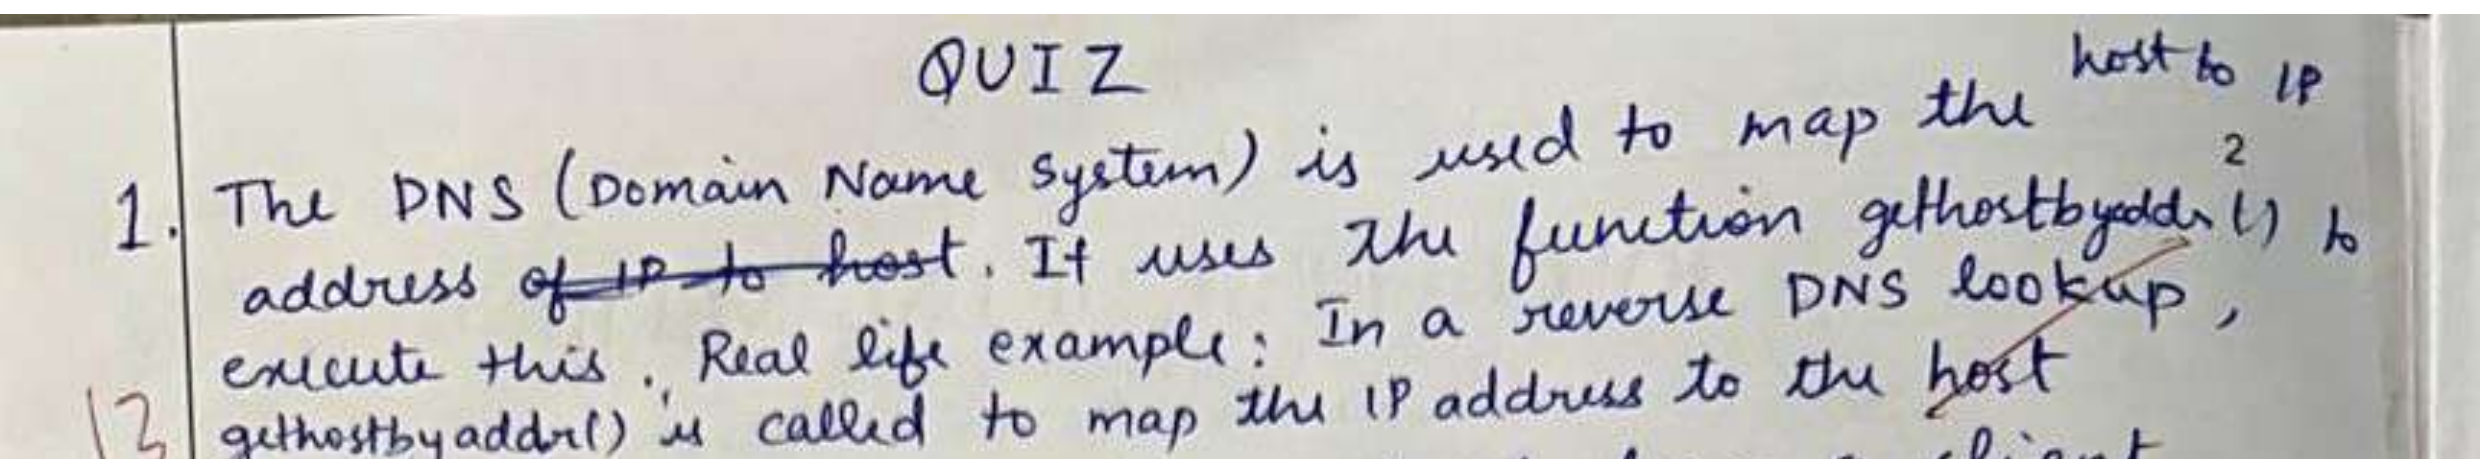 QUIZ
1. The DNS (Domain Name System) is used to map the host to IP
2
address of IP to host. It uses the function gethostbyaddr() to
execute this. Real life example: In a reverse DNS lookup,
13 gethostbyaddr() is called to map the IP address to the host
client